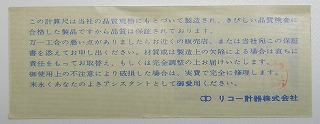 この計算尺は当社の品質規格にもとづいて製造され、きびしい品質検査に
合格した製品ですから品質は保証されております。
万一工合の悪い点がありましたらお近くの販売店、または当社宛この保証
書を添えてお申し出ください。材質或は製造上の欠陥による場合は直ちに
責任をもってお取替え、もしくは完全調整の上お届けいたします。
御使用上の不注意により破損した場合は、実費で完全に修理します。
末永くあなたのよきアシスタントとして御愛用ください。
リコー計器株式会社